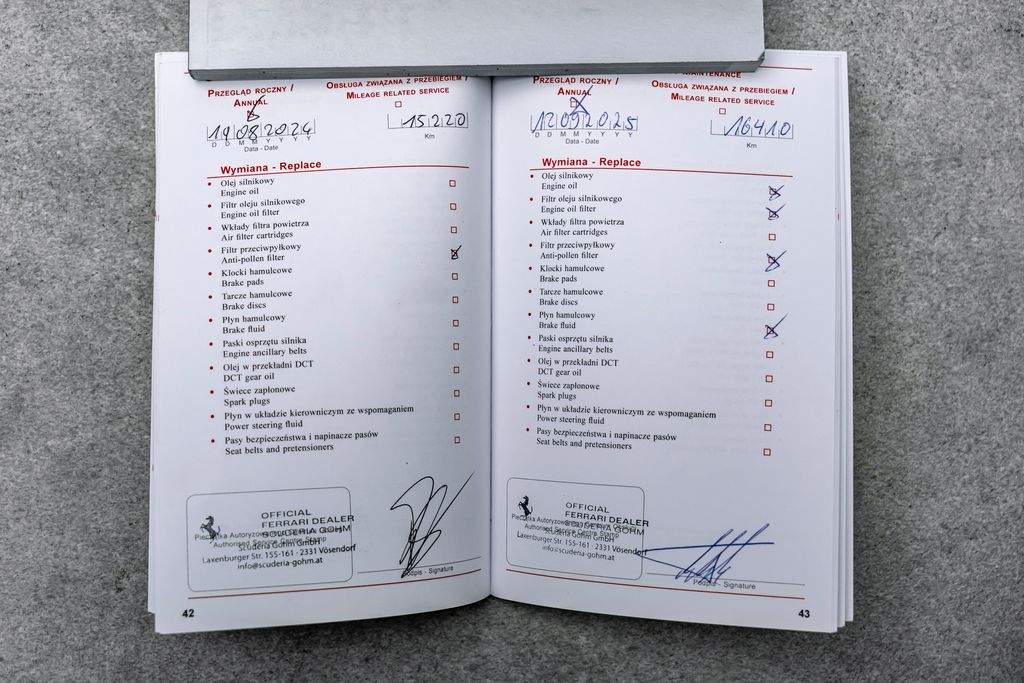 PRZEGLĄD ROCZNY /
ANNUAL
OBSŁUGA ZWIĄZANA Z PRZEBIEGIEM /
MILEAGE RELATED SERVICE
14082024
D D M M Y Y Y Y
Data - Date
15220
Km
Wymiana - Replace
Olej silnikowy
Engine oil
Filtr oleju silnikowego
Engine oil filter
Wkłady filtra powietrza
Air filter cartridges
Filtr przeciwpyłkowy
Anti-pollen filter
Klocki hamulcowe
Brake pads
Tarcze hamulcowe
Brake discs
Płyn hamulcowy
Brake fluid
Paski osprzętu silnika
Engine ancillary belts
Olej w przekładni DCT
DCT gear oil
Świece zapłonowe
Spark plugs
Płyn w układzie kierowniczym ze wspomaganiem
Power steering fluid
Pasy bezpieczeństwa i napinacze pasów
Seat belts and pretensioners
OFFICIAL
FERRARI DEALER
SCUDERIA GOHM
Pieczątka Autoryzowanego
Authorised Service Centre Stamp
Scuderia Gohm GmbH
Laxenburger Str. 155-161 · 2331 Vösendorf
info@scuderia-gohm.at
Podpis - Signature
42
MAINTENANCE
PRZEGLĄD ROCZNY /
ANNUAL
OBSŁUGA ZWIĄZANA Z PRZEBIEGIEM /
MILEAGE RELATED SERVICE
12092025
D D M M Y Y Y Y
Data - Date
16410
Km
Wymiana - Replace
Olej silnikowy
Engine oil
Filtr oleju silnikowego
Engine oil filter
Wkłady filtra powietrza
Air filter cartridges
Filtr przeciwpyłkowy
Anti-pollen filter
Klocki hamulcowe
Brake pads
Tarcze hamulcowe
Brake discs
Płyn hamulcowy
Brake fluid
Paski osprzętu silnika
Engine ancillary belts
Olej w przekładni DCT
DCT gear oil
Świece zapłonowe
Spark plugs
Płyn w układzie kierowniczym ze wspomaganiem
Power steering fluid
Pasy bezpieczeństwa i napinacze pasów
Seat belts and pretensioners
OFFICIAL
FERRARI DEALER
SCUDERIA GOHM
Pieczątka Autoryzowanego
Authorised Service Centre Stamp
Scuderia Gohm GmbH
Laxenburger Str. 155-161 · 2331 Vösendorf
info@scuderia-gohm.at
Podpis - Signature
43